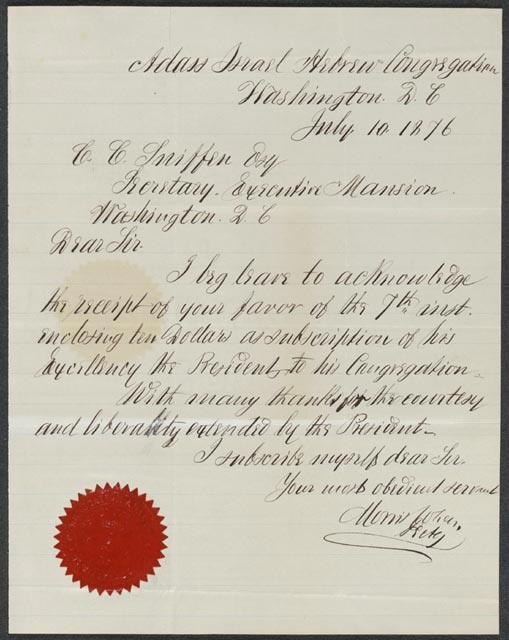 Adass Israel Hebrew Congregation
Washington. D. C
July 10. 1876
C. C. Sniffen Esq
Secretary. Executive Mansion.
Washington. D. C
Dear Sir.
I beg leave to acknowledge
the receipt of your favor of the 7th inst.
enclosing ten Dollars as subscription of his
Excellency the President, to this Congregation—
With many thanks for the courtesy
and liberality extended by the President—
I subscribe myself dear Sir.
Your most obedient servant
Morris Cohen.
Secty